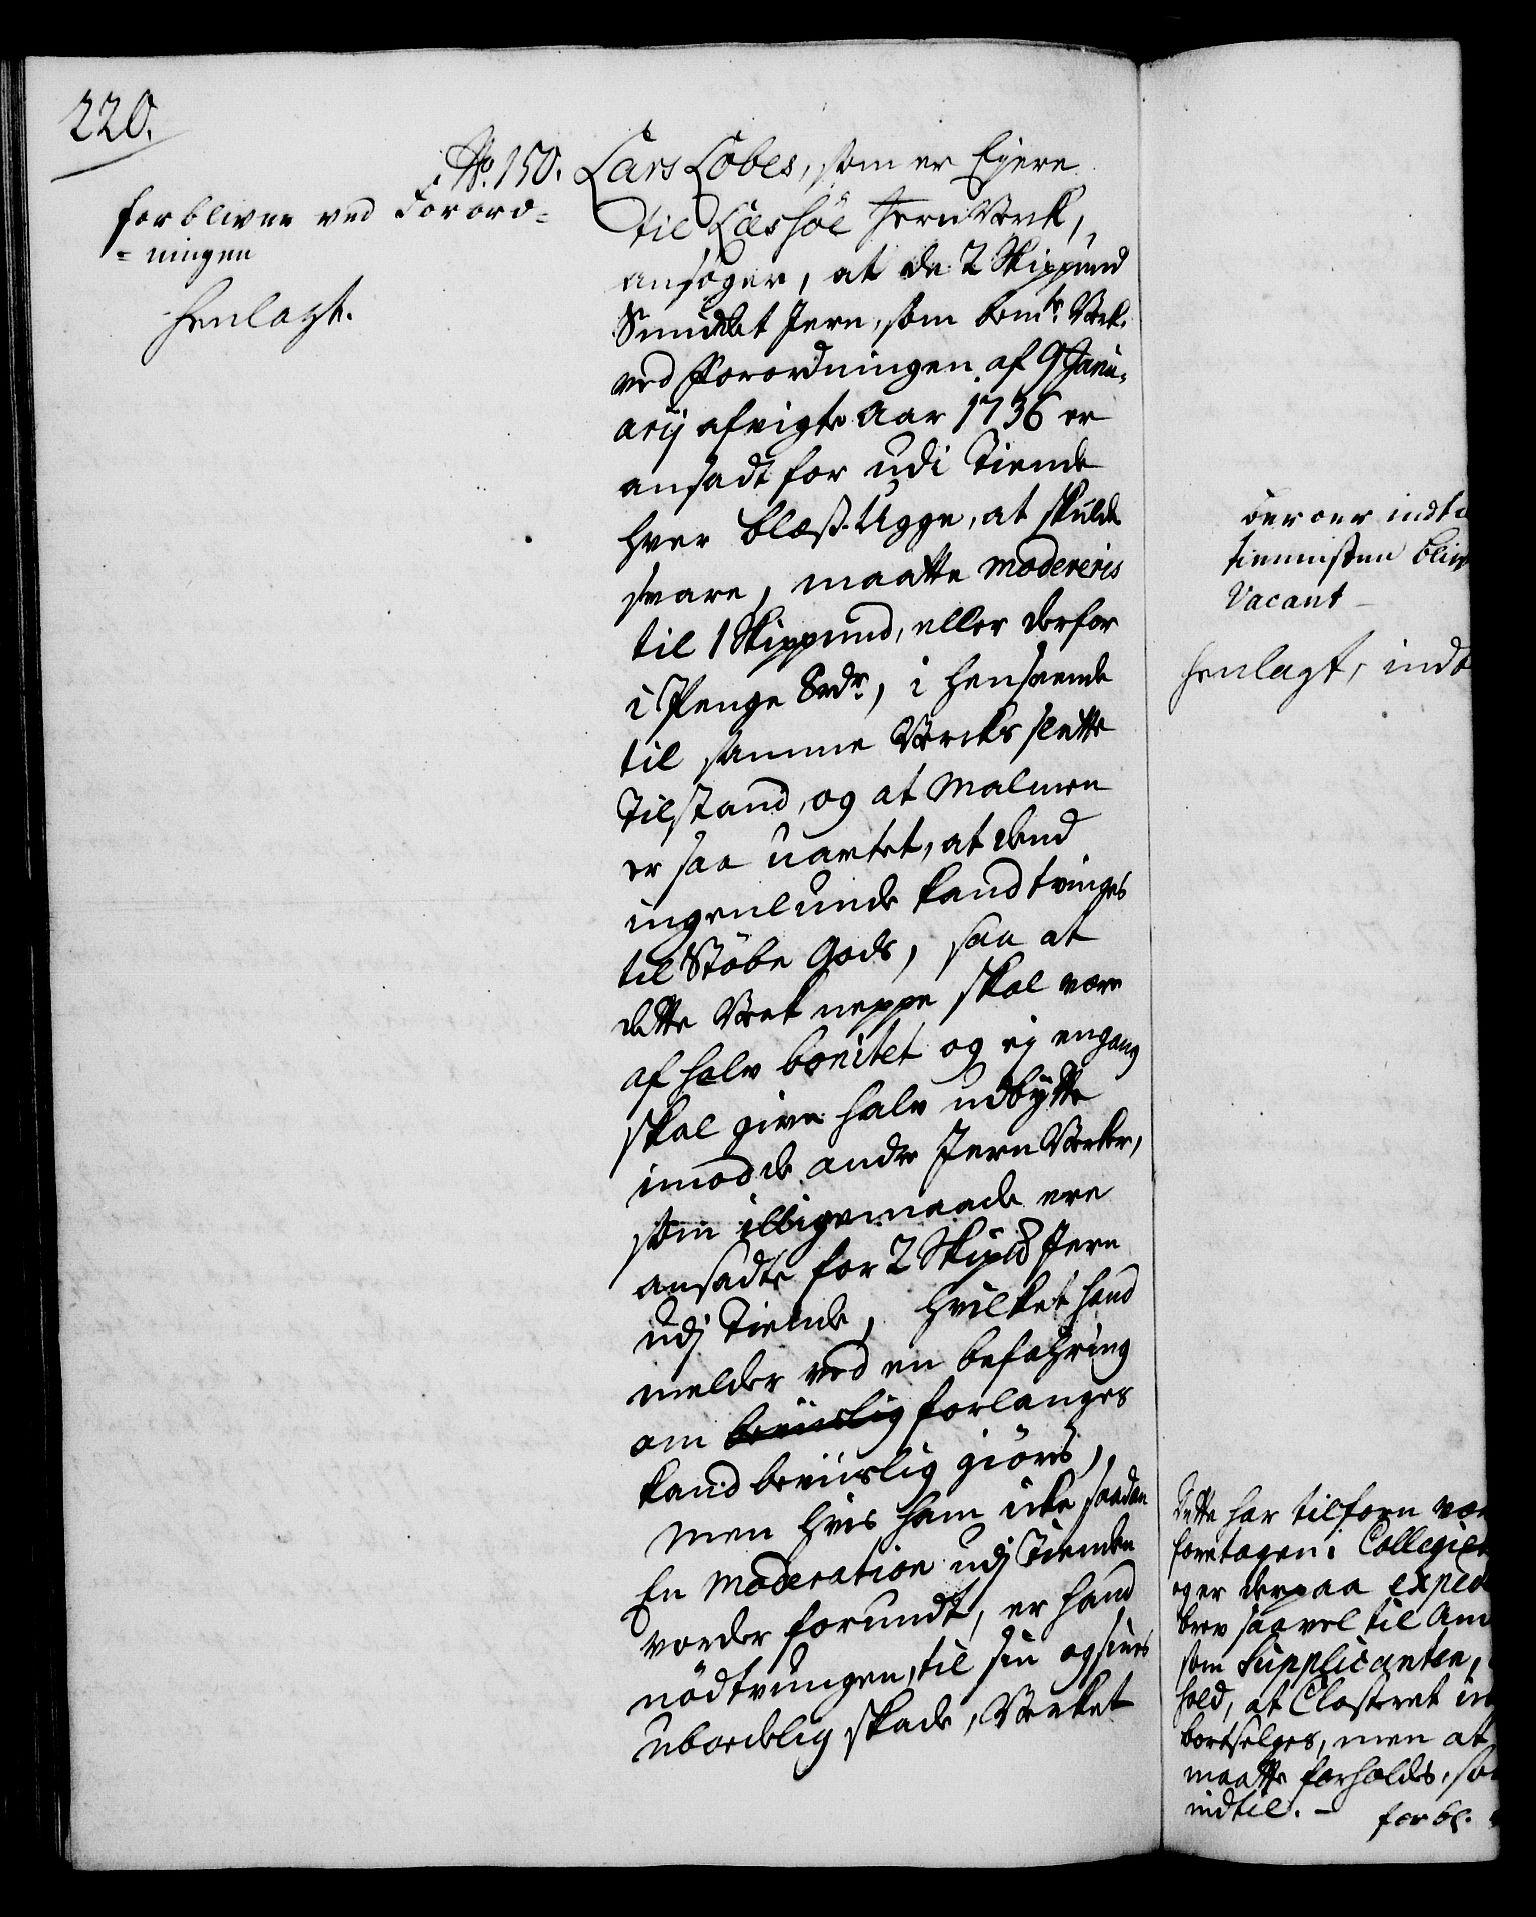 220.
forbliver ved Forord-
-ningen
henlagt.
No. 150. Lars Lobes, som er Ejere
til Læshöe JernVerk,
ansøger, at de 2 Skippund
Smiddet Jern, som bemte Verk
ved Forordningen af 9 Janu-
arij afvigte Aar 1736 er
ansadt for udi Tiende
hver Blæs-Ugge, at skulde
svare, maatte modereris
til 1 Skippund, eller derfor
i Penge 8rdr., i henseende
til samme Verks slette
Tilstand, og at Malmen
er saa uartet, at dend
ingenlunde kand tvinges
til Støbe Gods, saa at
dette Verk neppe skal være
af halv bonitet og ej engang
skal give halv udbytte
imod de andre Jern Verker,
som illigemaade ere
ansadte for 2 Skipd Jern
udj Tiende, hvilket hand
melder ved en befahring
om beviislig forlanges
kand beviislig giöres,
men hvis ham icke saadan
En Moderation udj Tienden
vorder forundt, er hand
nödtvungen, til sin ogsines
ubodelig skade, Verket
derover indti
tiennisten bliv
Vacant
henlagt, indt
Dette har tilforn vær
foretagen i Collegiet
og er derpaa exped
brev saavel til Am
som Supplicanten,
hold, at Closteret in
bortselges, men at
maatte forholdes, so
indtil. - forbl.